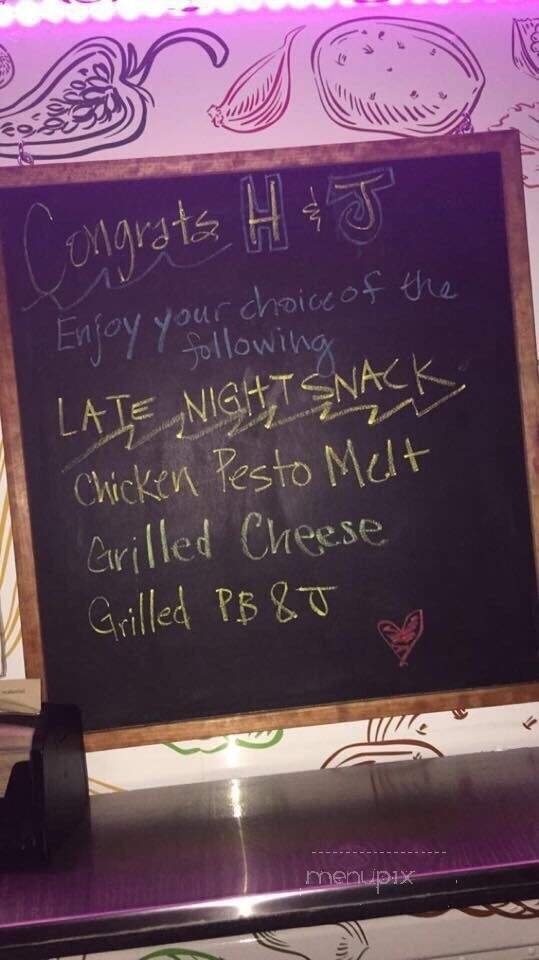 Congrats H & J
Enjoy your choice of the
following
LATE NIGHT SNACK
Chicken Pesto Melt
Grilled Cheese
Grilled PB & J
menupix